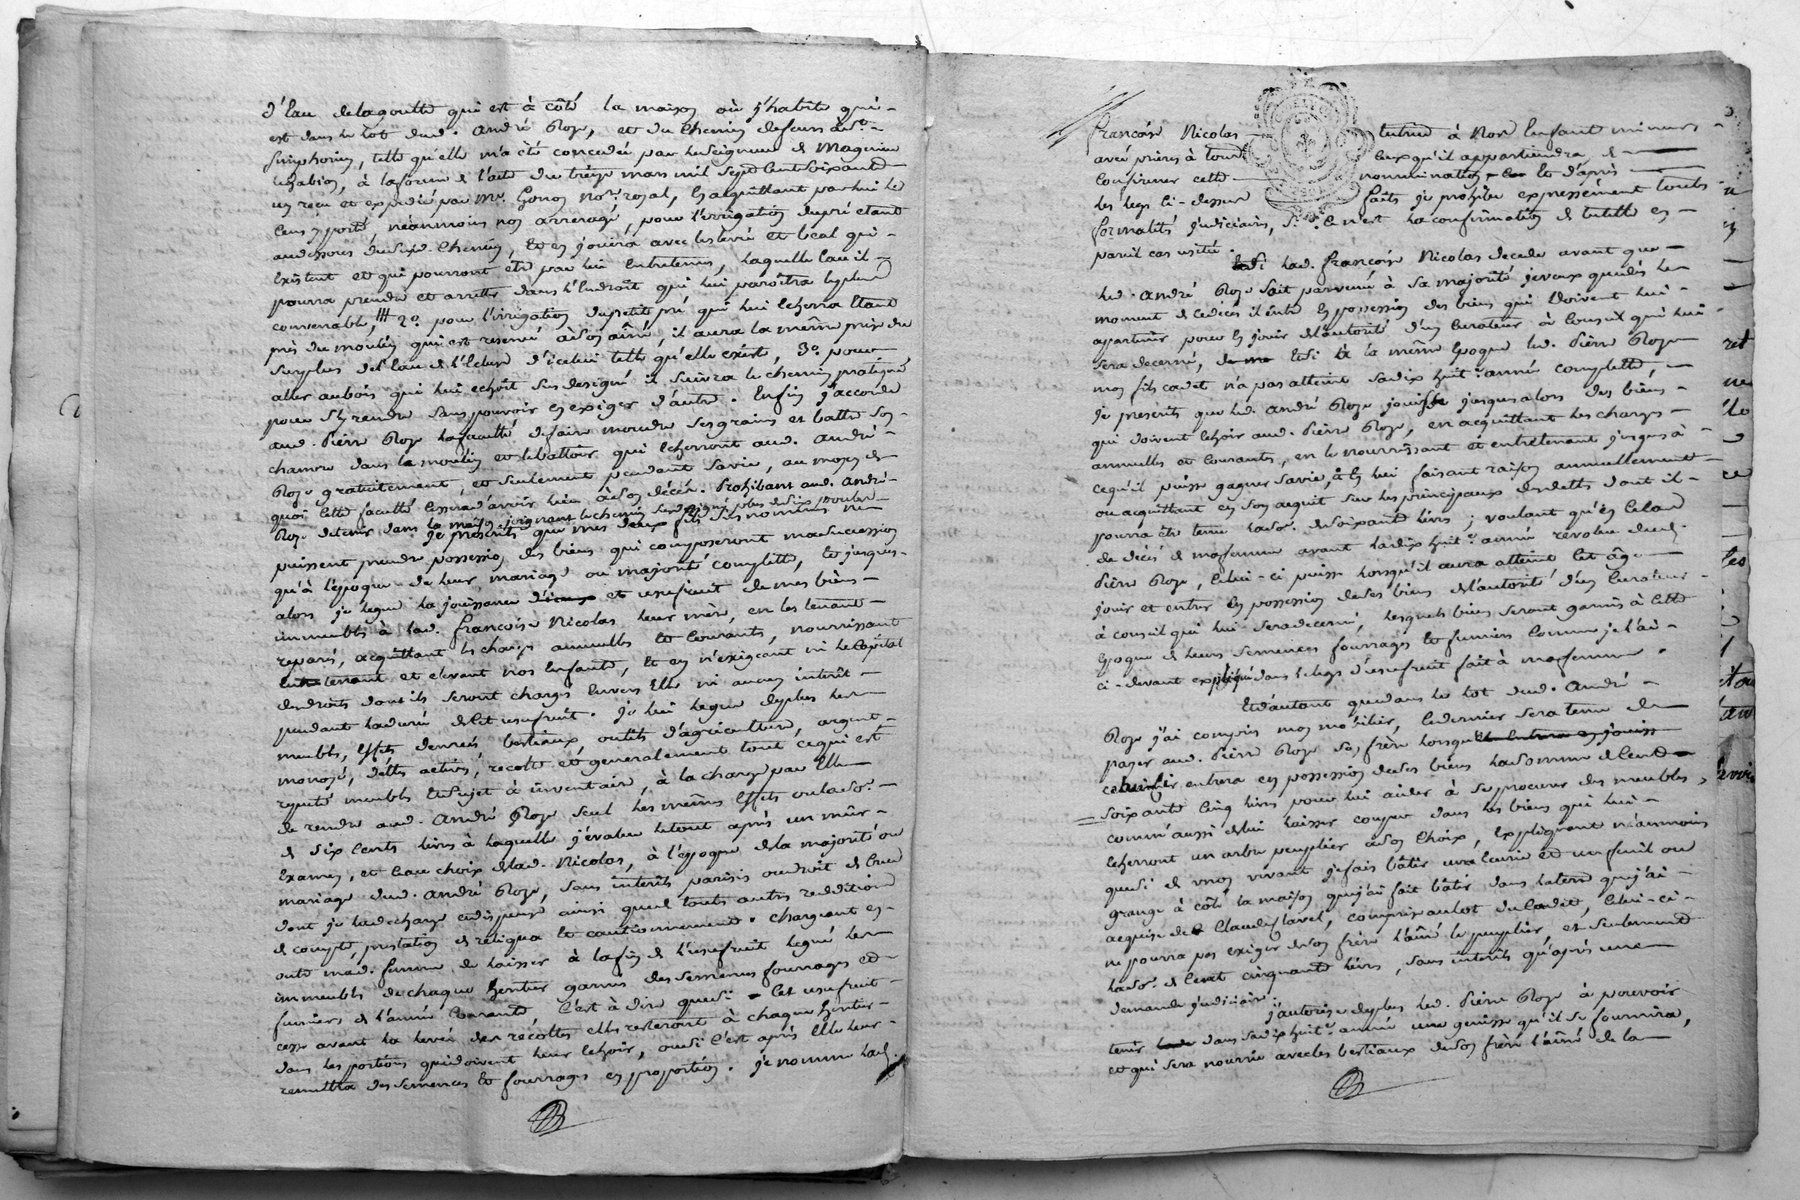 d'Eau delagoutte qui est à côté la maison où j'habite qui
est dans le lot dud. André Roze, et du chemin de feurs à St.
Simphorien, telle qu'elle m'a été concedée par le Seigneur de Magnieu
le gabion, à la forme de l'acte du treize mars mil sept cent soixante
un reçu et expedié par Me. Gonon Nore. royal, en acquittant par lui le
cens y porté néanmoins non arreragé, pour l'irrigation du pré etant
audessous dudit chemin, et en jouira avec les levée et béal qui
existent et qui pourront être par lui entretenus, laquelle eau il
pourra prendre et arretter dans l'Endroit qui lui paroîtra le plus
convenable, 2o. pour l'irrigation du petit pré qui lui echerra etant
près du moulin qui est reservé à son aîné, il aura la même prise du
surplus de l'eau de l'Ecluse d'icelui telle qu'elle existe, 3o. pour
aller au bois qui lui echoit sus designé il suivra le chemin pratiqué
pour s'y rendre sans pouvoir en exiger d'autre. Enfin j'accorde
aud. Pierre Roze la faculté de faire moudre ses grains et battre son
chanvre dans le moulin et le battoir qui echerront aud. André
Roze gratuitement, et seulement pendant sa vie, au moyen de
quoi cette faculté cessera d'avoir lieu à son décès. Prohibant aud. André
Roze de tenir dans la maison joignant le chemin sus designé plus de six poules
je prescrits que mes deux fils sus nommés ne
puissent prendre possession des biens qui composeront ma succession
qu'à l'époque de leur mariage ou majorité complette, et jusques
alors je legue la jouissance et usufruit de mes biens
immeubles à lad. françoise Nicolas leur mère, en les tenant
reparés, acquittant les charges annuelles et courants, nourrissant
entretenant et elevant nos enfants, et en n'exigeant ni le capital
des droits dont ils seront chargés envers Elle ni aucun intérêt
pendant la durée de cet usufruit. je lui legue de plus les
meubles, effets, denrées, bestiaux, outils d'agriculture, argent
monoyé, dettes actives, recolte et generalement tout ce qui est
reputé meuble et sujet à inventaire, à la charge par Elle
de rendre aud. André Roze seul les mêmes effets ou la so.
de six cents livres à laquelle j'évalue le tout après un mûr
Examen, et c'au choix de lad. Nicolas, à l'époque de la majorité ou
mariage dud. André Roze, sans interêts parisis ou droit de crue
dont je la decharge et dispense ainsi que de toute autre reddition
de compte, prestation de reliqua et cautionnement. Chargeant en
outre mad. femme de laisser à la fin de l'usufruit legué les
immeubles de chaque heritier garnis des semences fourrages et
fumiers de l'année courante, c'est à dire que si cet usufruit
cesse avant la levée des recoltes elles resteront à chaque heritier
dans les portions qui doivent leur echoir, ou si c'est après Elle leur
remettra des semences et fourrages en proportion. je nomme lad.
françoise Nicolas tutrice à nos enfants mineurs
avec prieres à tous ceux qu'il appartiendra de
confirmer cette nomination et d'après
les legs ci-dessus faits je prohibe expressément toutes
formalités judiciaires, si ce n'est la confirmation de tutelle en
pareil cas usitée.
si lad. françoise Nicolas decede avant que
led. André Roze soit parvenu à sa majorité je veux que dès le
moment de ce decès il entre en possession des biens qui doivent lui
appartenir, pour en jouir de l'autorité d'un curateur à conseil qui lui
sera decerné, et si à la même époque led. Pierre Roze
mon fils cadet n'a pas atteint sa dix huit.e année complette,
je prescrits que led. André Roze jouisse jusques alors des biens
qui doivent echoir aud. Pierre Roze, en acquittant les charges
annuelles et courantes, en le nourrissant et entretenant jusques à
ce qu'il puisse gagner sa vie, & en lui faisant raison annuellement
ou acquittant en son acquit sur les principaux des dettes dont il
pourra être tenu la so. de soixante livres; voulant qu'en cas
de décès de ma femme avant la dix huit.e année revolue dud.
Pierre Roze, celui-ci puisse lorsqu'il aura atteint cet âge
jouir et entrer en possession de ses biens de l'autorité d'un curateur
à conseil qui lui sera decerné, lesquels biens seront garnis à cette
époque de leurs semences fourrages et fumiers comme je l'ai
ci-devant expliqué dans le legs d'usufruit fait à ma femme.
Et d'autant que dans le lot dud. André
Roze j'ai compris mon mobilier, ce dernier sera tenu de
payer aud. Pierre Roze son frère lorsque
ce dernier entrera en possession de ses biens la somme de cent
soixante cinq livres pour lui aider à se procurer des meubles,
comm'aussi de lui laisser couper dans les biens qui lui
echerront un arbre peuplier à son choix, Expliquant néanmoins
que si de mon vivant je fais bâtir une Ecurie et un fenil ou
grange à côté la maison que j'ai fait bâtir dans la terre que j'ai
acquise de Claude flavel, comprise au lot du cadet, celui-ci
ne pourra pas exiger de son frère l'aîné le peuplier, et seulement
la so. de cent cinquante livres, sans interêts qu'après une
demande judiciaire.
j'autorise de plus led. Pierre Roze à pouvoir
tenir dans sa dix huit.e année une genisse qu'il se fournira,
et qui sera nourrie avec les bestiaux de son frère l'aîné de la